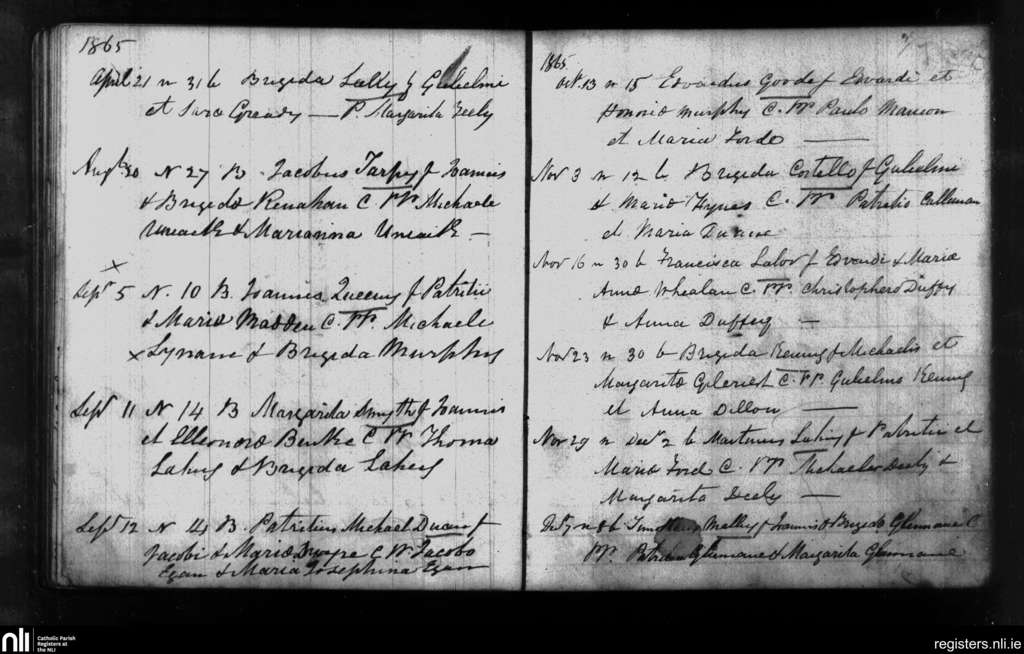 1865
April 21 n 31 b Brigida Lally f Gulielmi
et Sara Gready — P. Margarita Feely
Augt 20 N 27 B. Jacobus Tarpey f Joannis
& Brigidæ Renahan C PP. Michaele
Uniack & Marianna Uniack —
Sept 5 N. 10 B. Joannes Queeny f Patritii
& Mariæ Madden C. PP. Michaele
x Lynam & Brigida Murphy
Sept 11 N 14 B Margarita Smyth f Joannis
et Elleonoræ Burke C PP Thoma
Lahey & Brigida Lahey
Sept 12 N 14 B. Patritius Michael Duane f
Jacobi & Mariæ C PP. Jacobo
Egan & Maria Josephina Egan
1865
Oct. 13 n 15 Edvardus Goode f Edvardi et
Honoriæ Murphy C. PP Paulo Mannon
et Maria Forde —
Nov 3 n 12 b Brigida Costello f Gulielmi
& Mariæ Hynes C. PP. Patritio Callanan
et Maria
Nov 16 n 30 b Francisca Lalor f Edvardi & Mariæ
Annæ Whealan C. PP. Christophero Duffy
& Anna Duffey —
Nov 23 n 30 b Brigida Kenny f Michaelis et
Margaritæ C. PP. Gulielmo Kenny
et Anna Dillon —
Nov 29 n Decr 2 b Martinus Lahey f Patritii et
Mariæ Ford C. PP Michaele Deely &
Margarita Deely —
n 8 b Malley f Joannis & Brigidæ Glennane C
PP. Glennane & Margarita Glennane
nli
Catholic Parish
Registers at
the NLI
registers.nli.ie